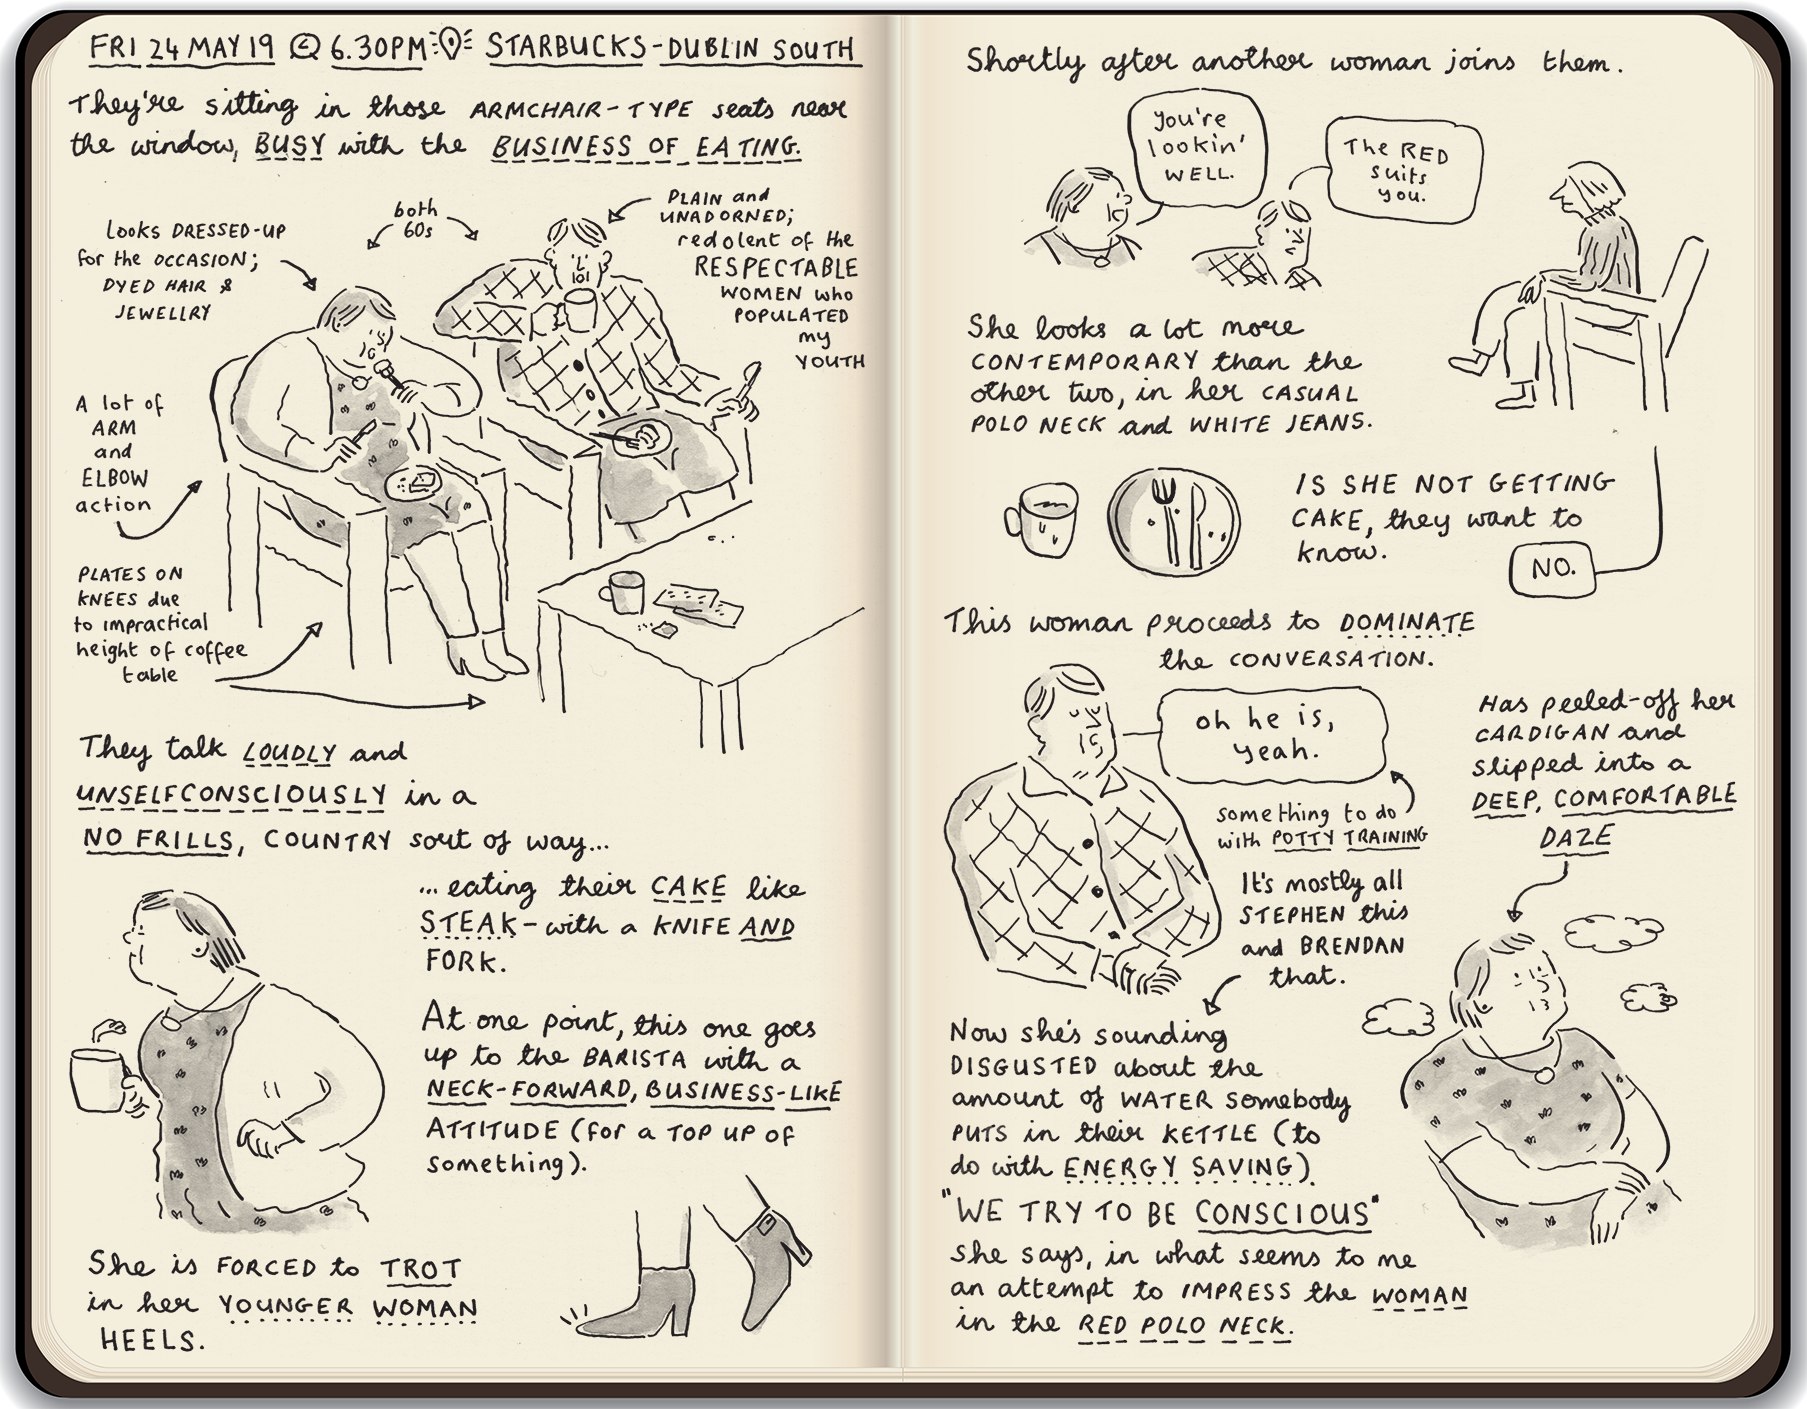 FRI 24 MAY 19 6.30PM STARBUCKS-DUBLIN SOUTH
They're sitting in those ARMCHAIR-TYPE seats near
the window, BUSY with the BUSINESS OF EATING.
both
60s
Looks DRESSED-UP
for the OCCASION;
DYED HAIR &
JEWELLRY
PLAIN and
UNADORNED;
redolent of the
RESPECTABLE
WOMEN who
POPULATED
my
YOUTH
A lot of
ARM
and
ELBOW
action
PLATES ON
KNEES due
to impractical
height of coffee
table
They talk LOUDLY and
UNSELFCONSCIOUSLY in a
NO FRILLS, COUNTRY sort of way...
... eating their CAKE like
STEAK - with a KNIFE AND
FORK.
At one point, this one goes
up to the BARISTA with a
NECK-FORWARD, BUSINESS-LIKE
ATTITUDE (for a TOP UP OF
something).
She is FORCED to TROT
in her YOUNGER WOMAN
HEELS.
Shortly after another woman joins them.
You're
lookin'
WELL.
The RED
suits
you.
She looks a lot more
CONTEMPORARY than the
other two, in her CASUAL
POLO NECK and WHITE JEANS.
IS SHE NOT GETTING
CAKE, they want to
know.
NO.
This woman proceeds to DOMINATE
the CONVERSATION.
oh he is,
yeah.
something to do
with POTTY TRAINING
It's mostly all
STEPHEN this
and BRENDAN
that.
Has peeled-off her
CARDIGAN and
slipped into a
DEEP, COMFORTABLE
DAZE
Now she's sounding
DISGUSTED about the
amount of WATER somebody
PUTS in their KETTLE (to
do with ENERGY SAVING).
"WE TRY TO BE CONSCIOUS"
she says, in what seems to me
an attempt to IMPRESS the WOMAN
in the RED POLO NECK.